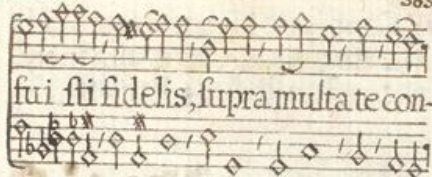 fui ſti fidelis, ſupra multa te con-